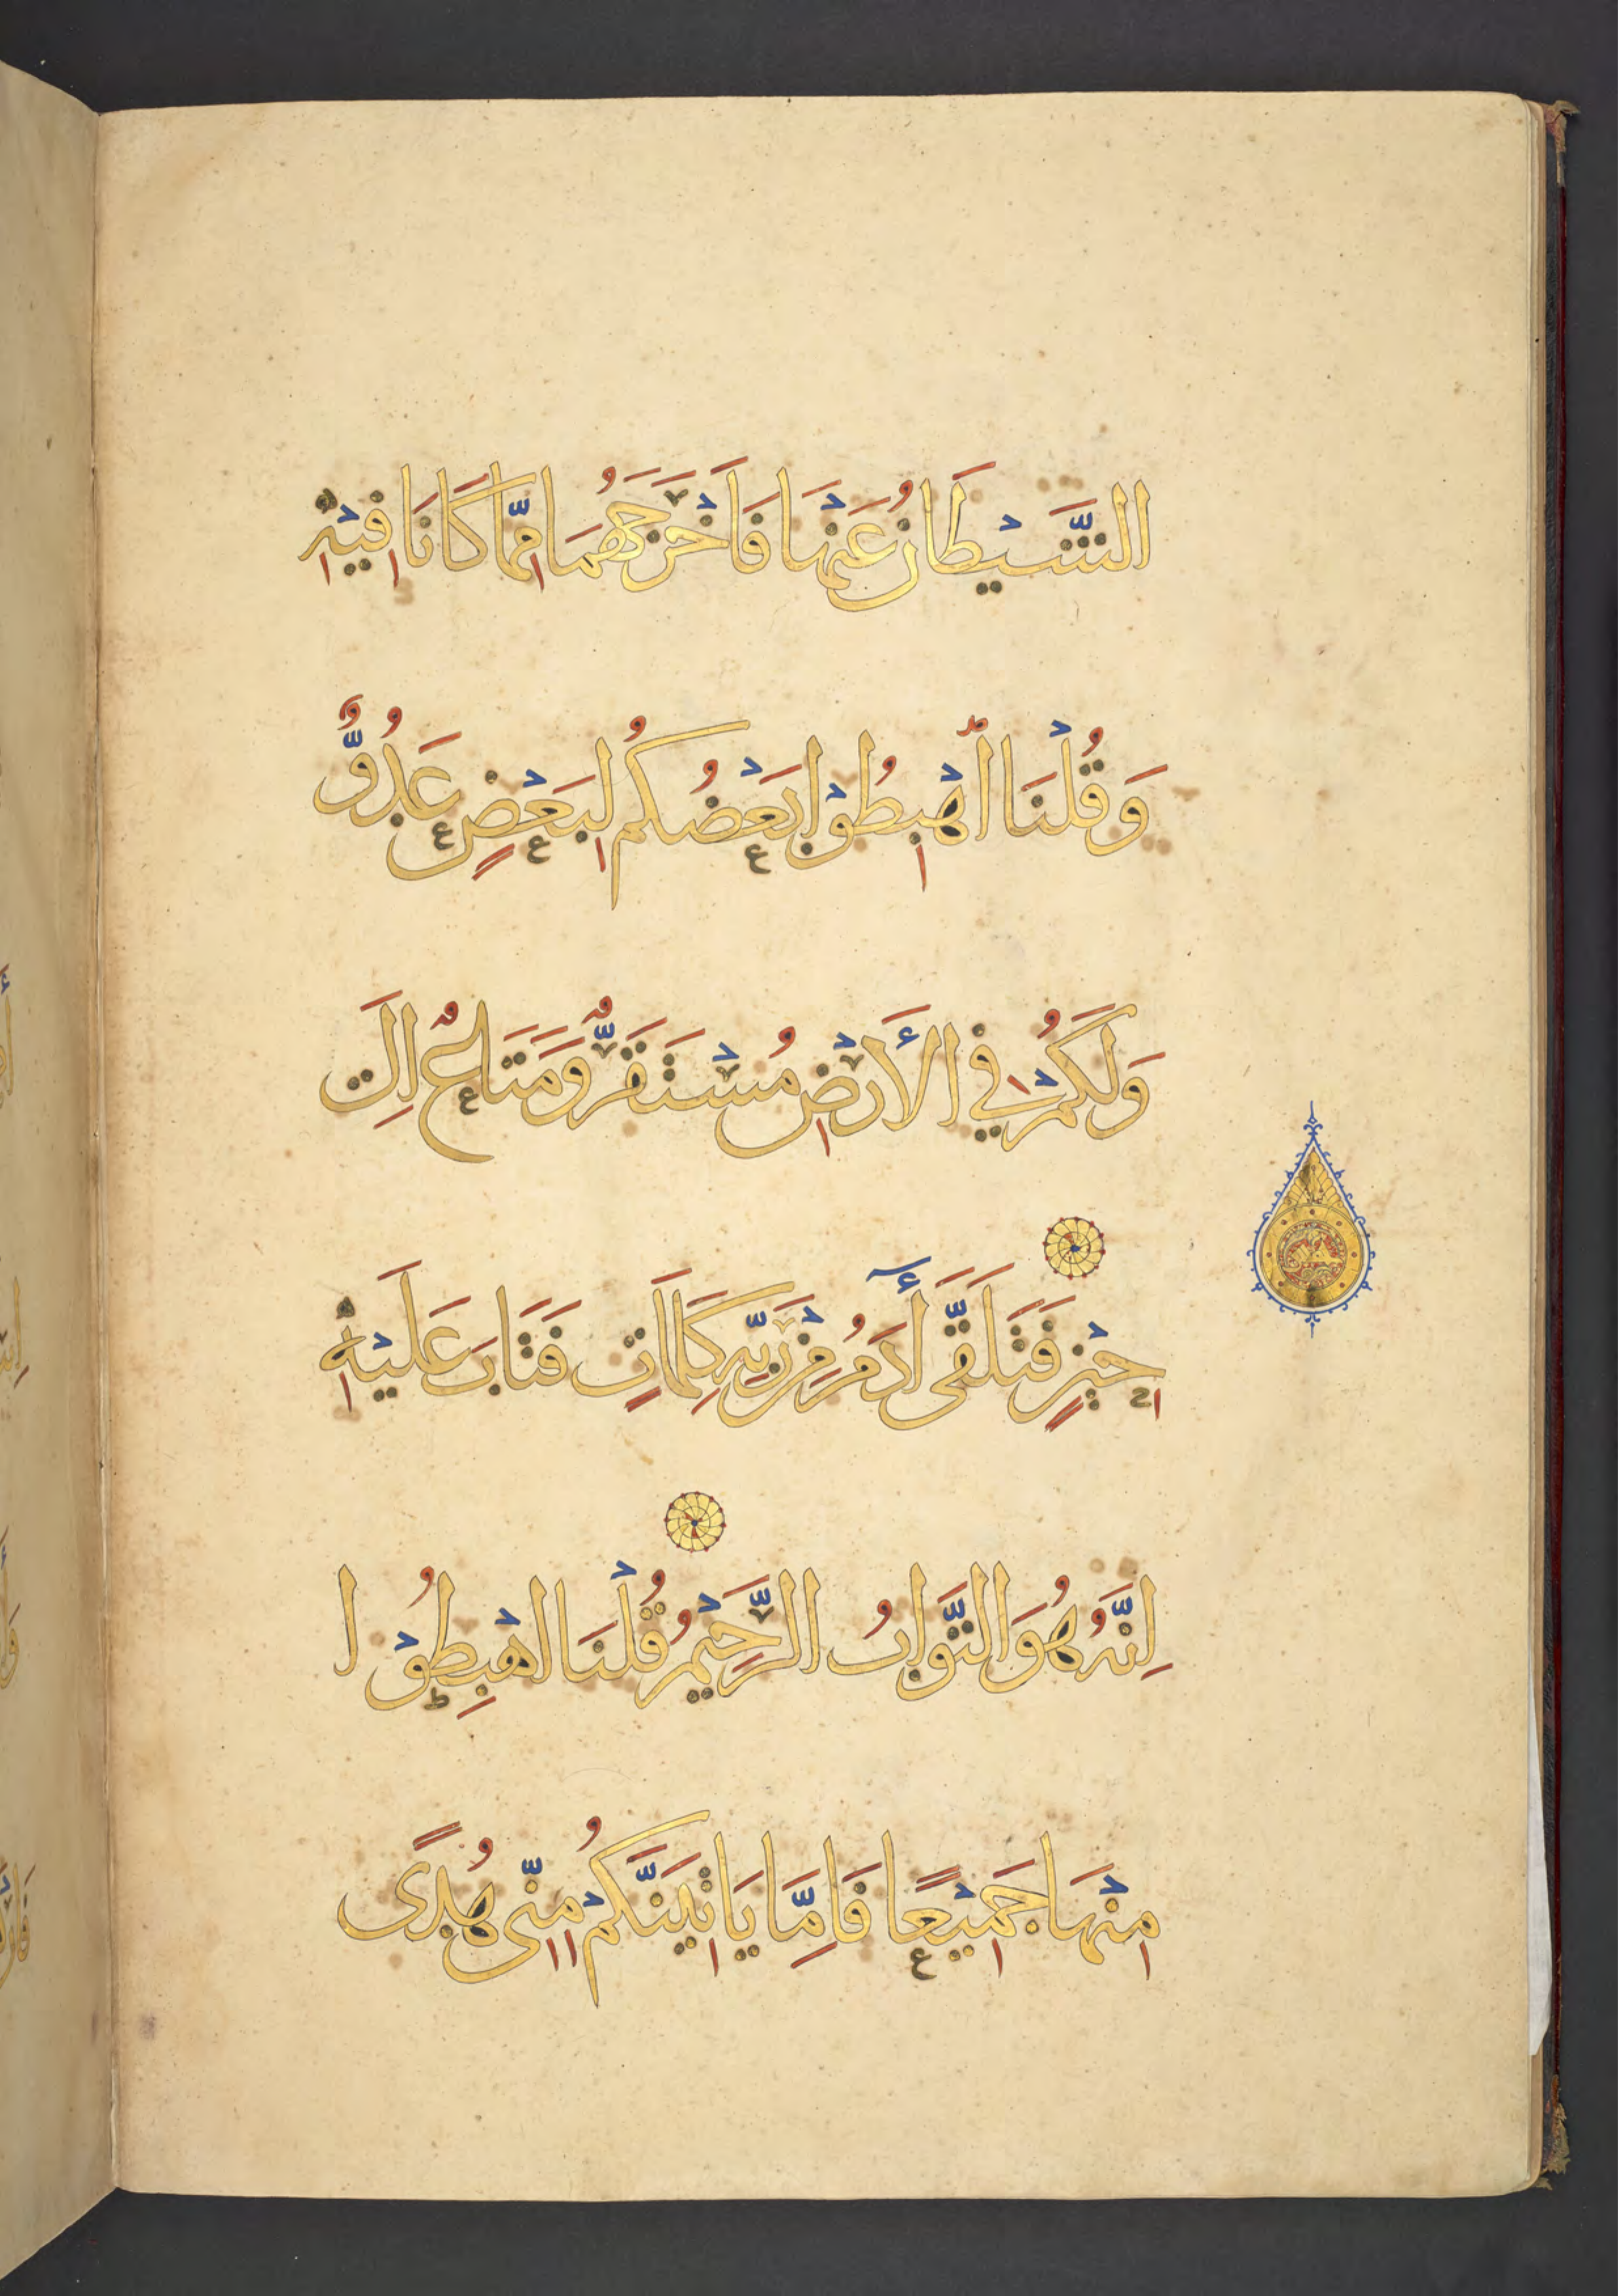 الشَّيْطَانُ عَنْهَا فَاَخْرَجَهُمَا مِمَّا كَانَا فِيْهِ
وَقُلْنَا اهْبِطُوْا بَعْضُكُمْ لِبَعْضٍ عَدُوٌّ
وَلَكُمْ فِي الْأَرْضِ مُسْتَقَرٌّ وَمَتَاعٌ اِلَى
حِيْنٍ فَتَلَقَّى أٓدَمُ مِنْ رَبِّهِ كَلِمَاتٍ فَتَابَ عَلَيْهِ
اِنَّهُ هُوَ التَّوَّابُ الرَّحِيْمُ قُلْنَا اهْبِطُوْا
مِنْهَا جَمِيْعًا فَاِمَّا يَاتِيَنَّكُمْ مِنِّى هُدًى